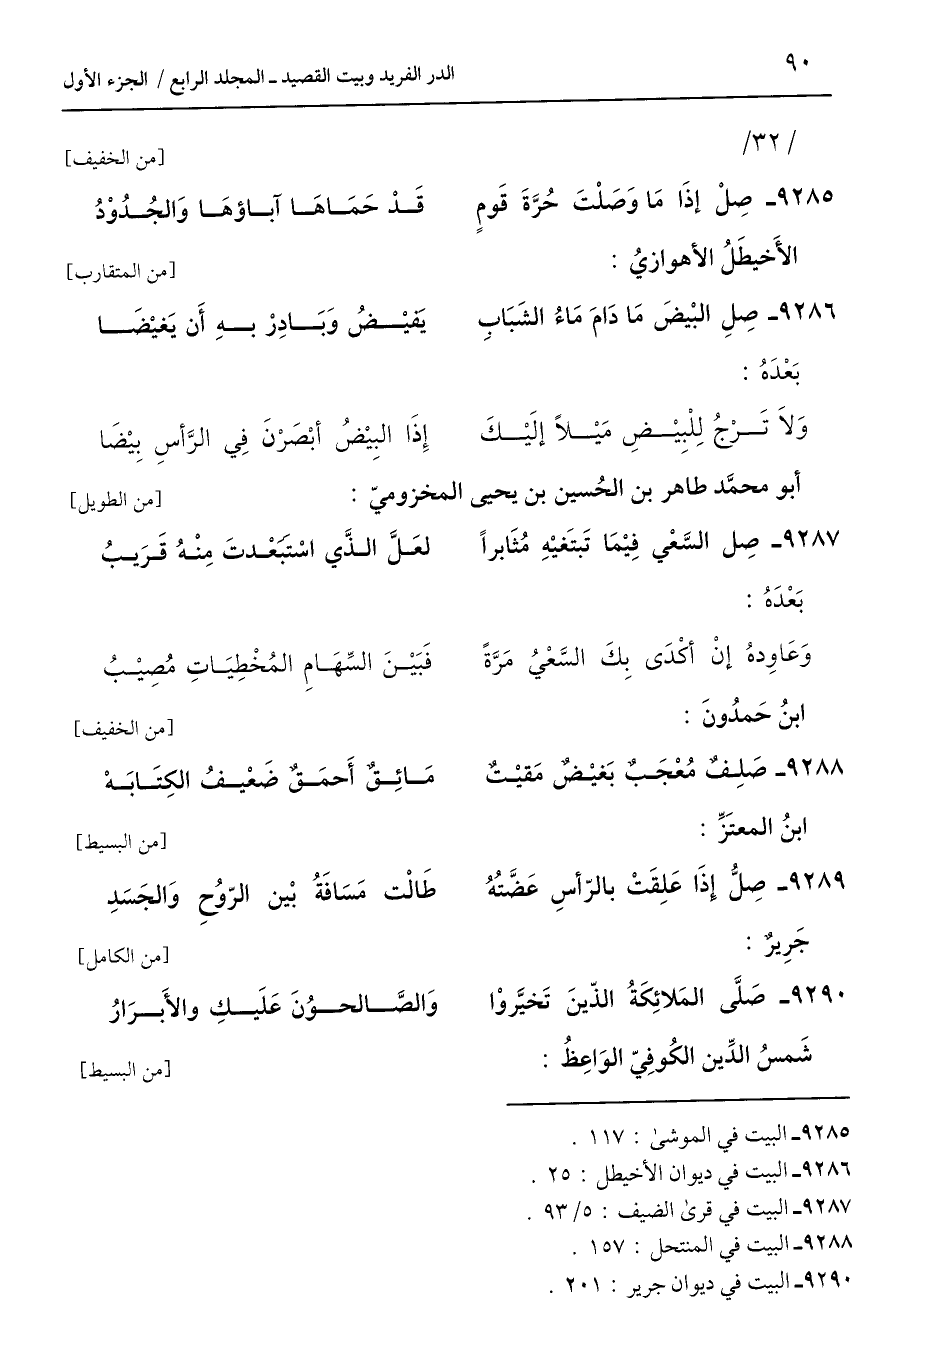 ٩٠
الدر الفريد وبيت القصيد ـ المجلد الرابع / الجزء الأول
/ ٣٢/
[من الخفيف]
٩٢٨٥ـ صِلْ إذَا مَا وَصَلْتَ حُرَّةَ قَومٍ قَدْ حَمَاهَا آباؤهَا وَالجُدُوْدُ
الأَخيطَلُ الأهوازيُ :
[من المتقارب]
٩٢٨٦ـ صِلِ البْيْضَ مَا دَامَ مَاءُ الشَبَابِ يَفيْضُ وَبَادِرْ بهِ أَن يَغيْضَا
بَعْدَهُ :
وَلاَ تَرْجُ لِلْبِيْضِ مَيْلاً إلَيْكَ إذَا البَيْضُ أبْصَرْنَ فِي الرَّأسِ بِيْضَا
أبو محمَّد طاهر بن الحُسين بن يحيى المخزوميّ :
[من الطويل]
٩٢٨٧ـ صِل السَّعْي فِيْمَا تَبتَغيْهِ مُثَابراً لعَلَّ الذَّي اسْتَبْعَدتَ مِنْهُ قَرَيبُ
بَعْدَهُ :
وَعَاوِدهُ إنْ أكْدَى بِكَ السَّعْيُ مَرَّةً فَبَيْنَ السِّهَامِ المُخْطِيَاتِ مُصِيْبُ
ابنُ حَمدُونَ :
[من الخفيف]
٩٢٨٨ـ صَلِفٌ مُعْجَبٌ بَغيْضٌ مَقيْتٌ مَائِقٌ أَحمَقٌ ضَعْيفُ الكِتَابَهْ
ابنُ المعتَزِّ :
[من البسيط]
٩٢٨٩ـ صِلُّ إذَا عَلِقَتْ بالرّأسِ عَضَّتُهُ طَالْت مَسَافَةُ بْين الرّوُحِ وَالجَسَدِ
جَرِيرٌ :
[من الكامل]
٩٢٩٠ـ صَلَّى المَلائِكَةُ الذّينَ تَخيَّروْا وَالصَّالحوُنَ عَلَيكِ والأبَرَارُ
شَمسُ الدِّين الكُوفِيّ الوَاعِظُ :
[من البسيط]
٩٢٨٥ـ البيت في الموشىٰ : ١١٧ .
٩٢٨٦ـ البيت في ديوان الأخيطل : ٢٥ .
٩٢٨٧ـ البيت في قرىٰ الضيف : ٥/ ٩٣ .
٩٢٨٨ـ البيت في المنتحل : ١٥٧ .
٩٢٩٠ـ البيت في ديوان جرير : ٢٠١ .